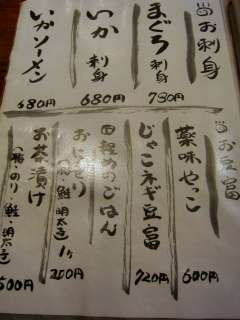 お刺身
まぐろ刺身
780円
いか刺身
680円
いかソーメン
480円
お豆富
薬味やっこ
600円
じゃこネギ豆富
720円
軽めのごはん
おにぎり
鮭・明太子
1ヶ
200円
お茶漬け
のり・鮭・明太子
500円